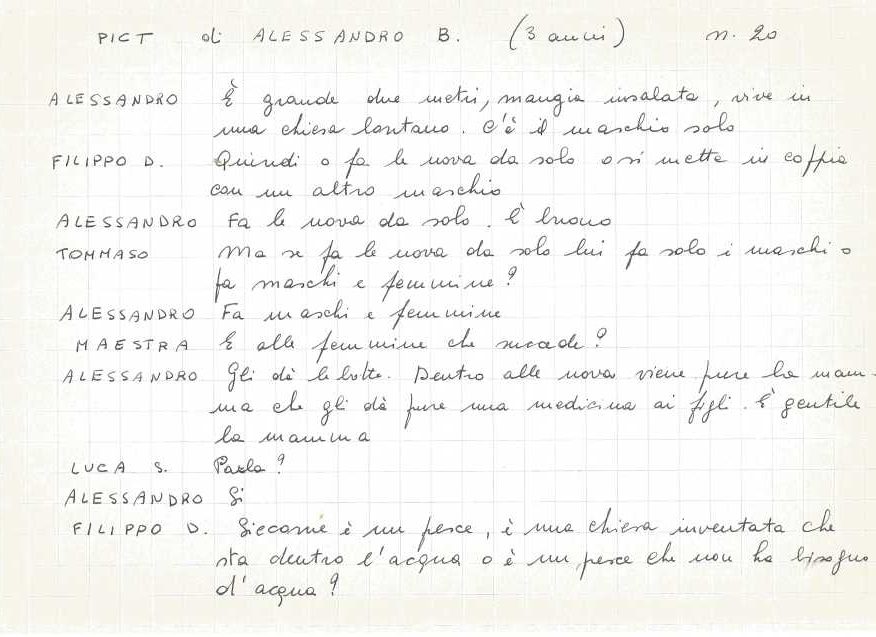 PICT di ALESSANDRO B. (3 anni) n. 20
ALESSANDRO È grande due metri, mangia insalata, vive in
una chiesa lontano. C'è il maschio solo
FILIPPO D. Quindi o fa le uova da solo o si mette in coppia
con un altro maschio
ALESSANDRO Fa le uova da solo. È buono
TOMMASO Ma se fa le uova da solo lui fa solo i maschi o
fa maschi e femmine?
ALESSANDRO Fa maschi e femmine
MAESTRA E alle femmine che succede?
ALESSANDRO Gli dà le botte. Dentro alle uova viene pure la mam-
ma che gli dà pure una medicina ai figli. È gentile
la mamma
LUCA S. Parla?
ALESSANDRO Si
FILIPPO D. Siccome è un pesce, è una chiesa inventata che
sta dentro l'acqua o è un pesce che non ha bisogno
d'acqua?